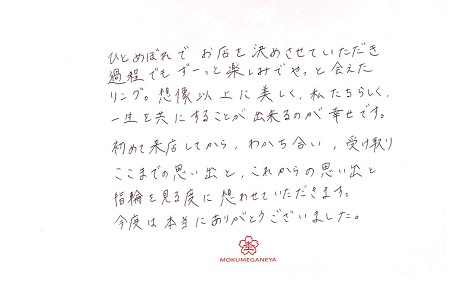 ひとめぼれで お店を決めさせていただき
過程でもずーっと楽しみでやっと会えた
リング。想像以上に美しく、私たちらしく、
一生を共にすることが出来るのが幸せです。
初めて来店してから、わかち合い、受け取り
ここまでの思い出と、これからの思い出と
指輪を見る度に想わせていただきます。
今度は本当にありがとうございました。
MOKUMEGANEYA